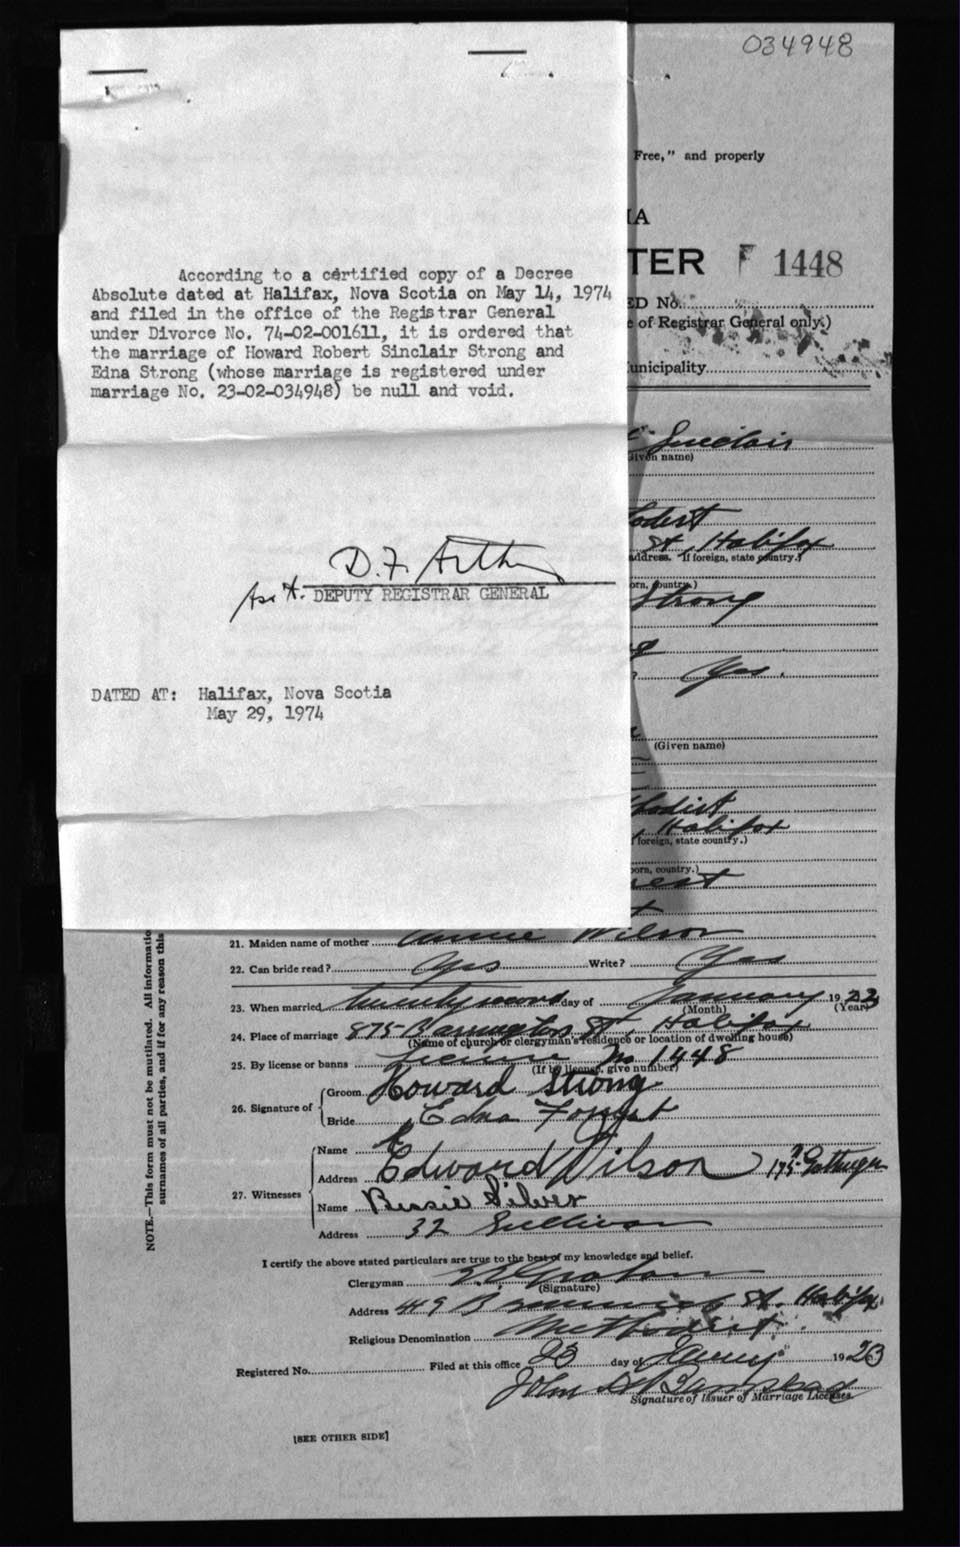 034948
Free," and properly
IA
TER F 1448
ED No.
e of Registrar General only.)
unicipality
According to a certified copy of a Decree
Absolute dated at Halifax, Nova Scotia on May 14, 1974
and filed in the office of the Registrar General
under Divorce No. 74-02-001611, it is ordered that
the marriage of Howard Robert Sinclair Strong and
Edna Strong (whose marriage is registered under
marriage No. 23-02-034948) be null and void.
Sinclair
Given name)
odist
St, Halifax
address. If foreign, state country.)
orn, country.)
Strong
Yes.
D. F. Arthur
Ass't. DEPUTY REGISTRAR GENERAL
DATED AT: Halifax, Nova Scotia
May 29, 1974
(Given name)
hodist
, Halifax
foreign, state country.)
orn, country.)
rest
21. Maiden name of mother Annie Wilson
22. Can bride read? Yes Write? Yes
23. When married twenty second day of January 1923
(Month) (Year)
24. Place of marriage 875 Barrington St, Halifax
(Name of church or clergyman's residence or location of dwelling house)
25. By license or banns License No 1448
(If by license, give number)
26. Signature of Groom Howard Strong
Bride Edna Forrest
27. Witnesses Name
Address Edward Wilson 175 Gottingen
Name Bessie Silver
Address 32 Sullivan
I certify the above stated particulars are true to the best of my knowledge and belief.
Clergyman
(Signature)
Address 449 Brunswick St. Halifax
Religious Denomination Methodist.
Registered No. Filed at this office 23 day of January 1923
John
Signature of Issuer of Marriage Licenses.
[SEE OTHER SIDE]
NOTE.—This form must not be mutilated. All informatio
surnames of all parties, and if for any reason this